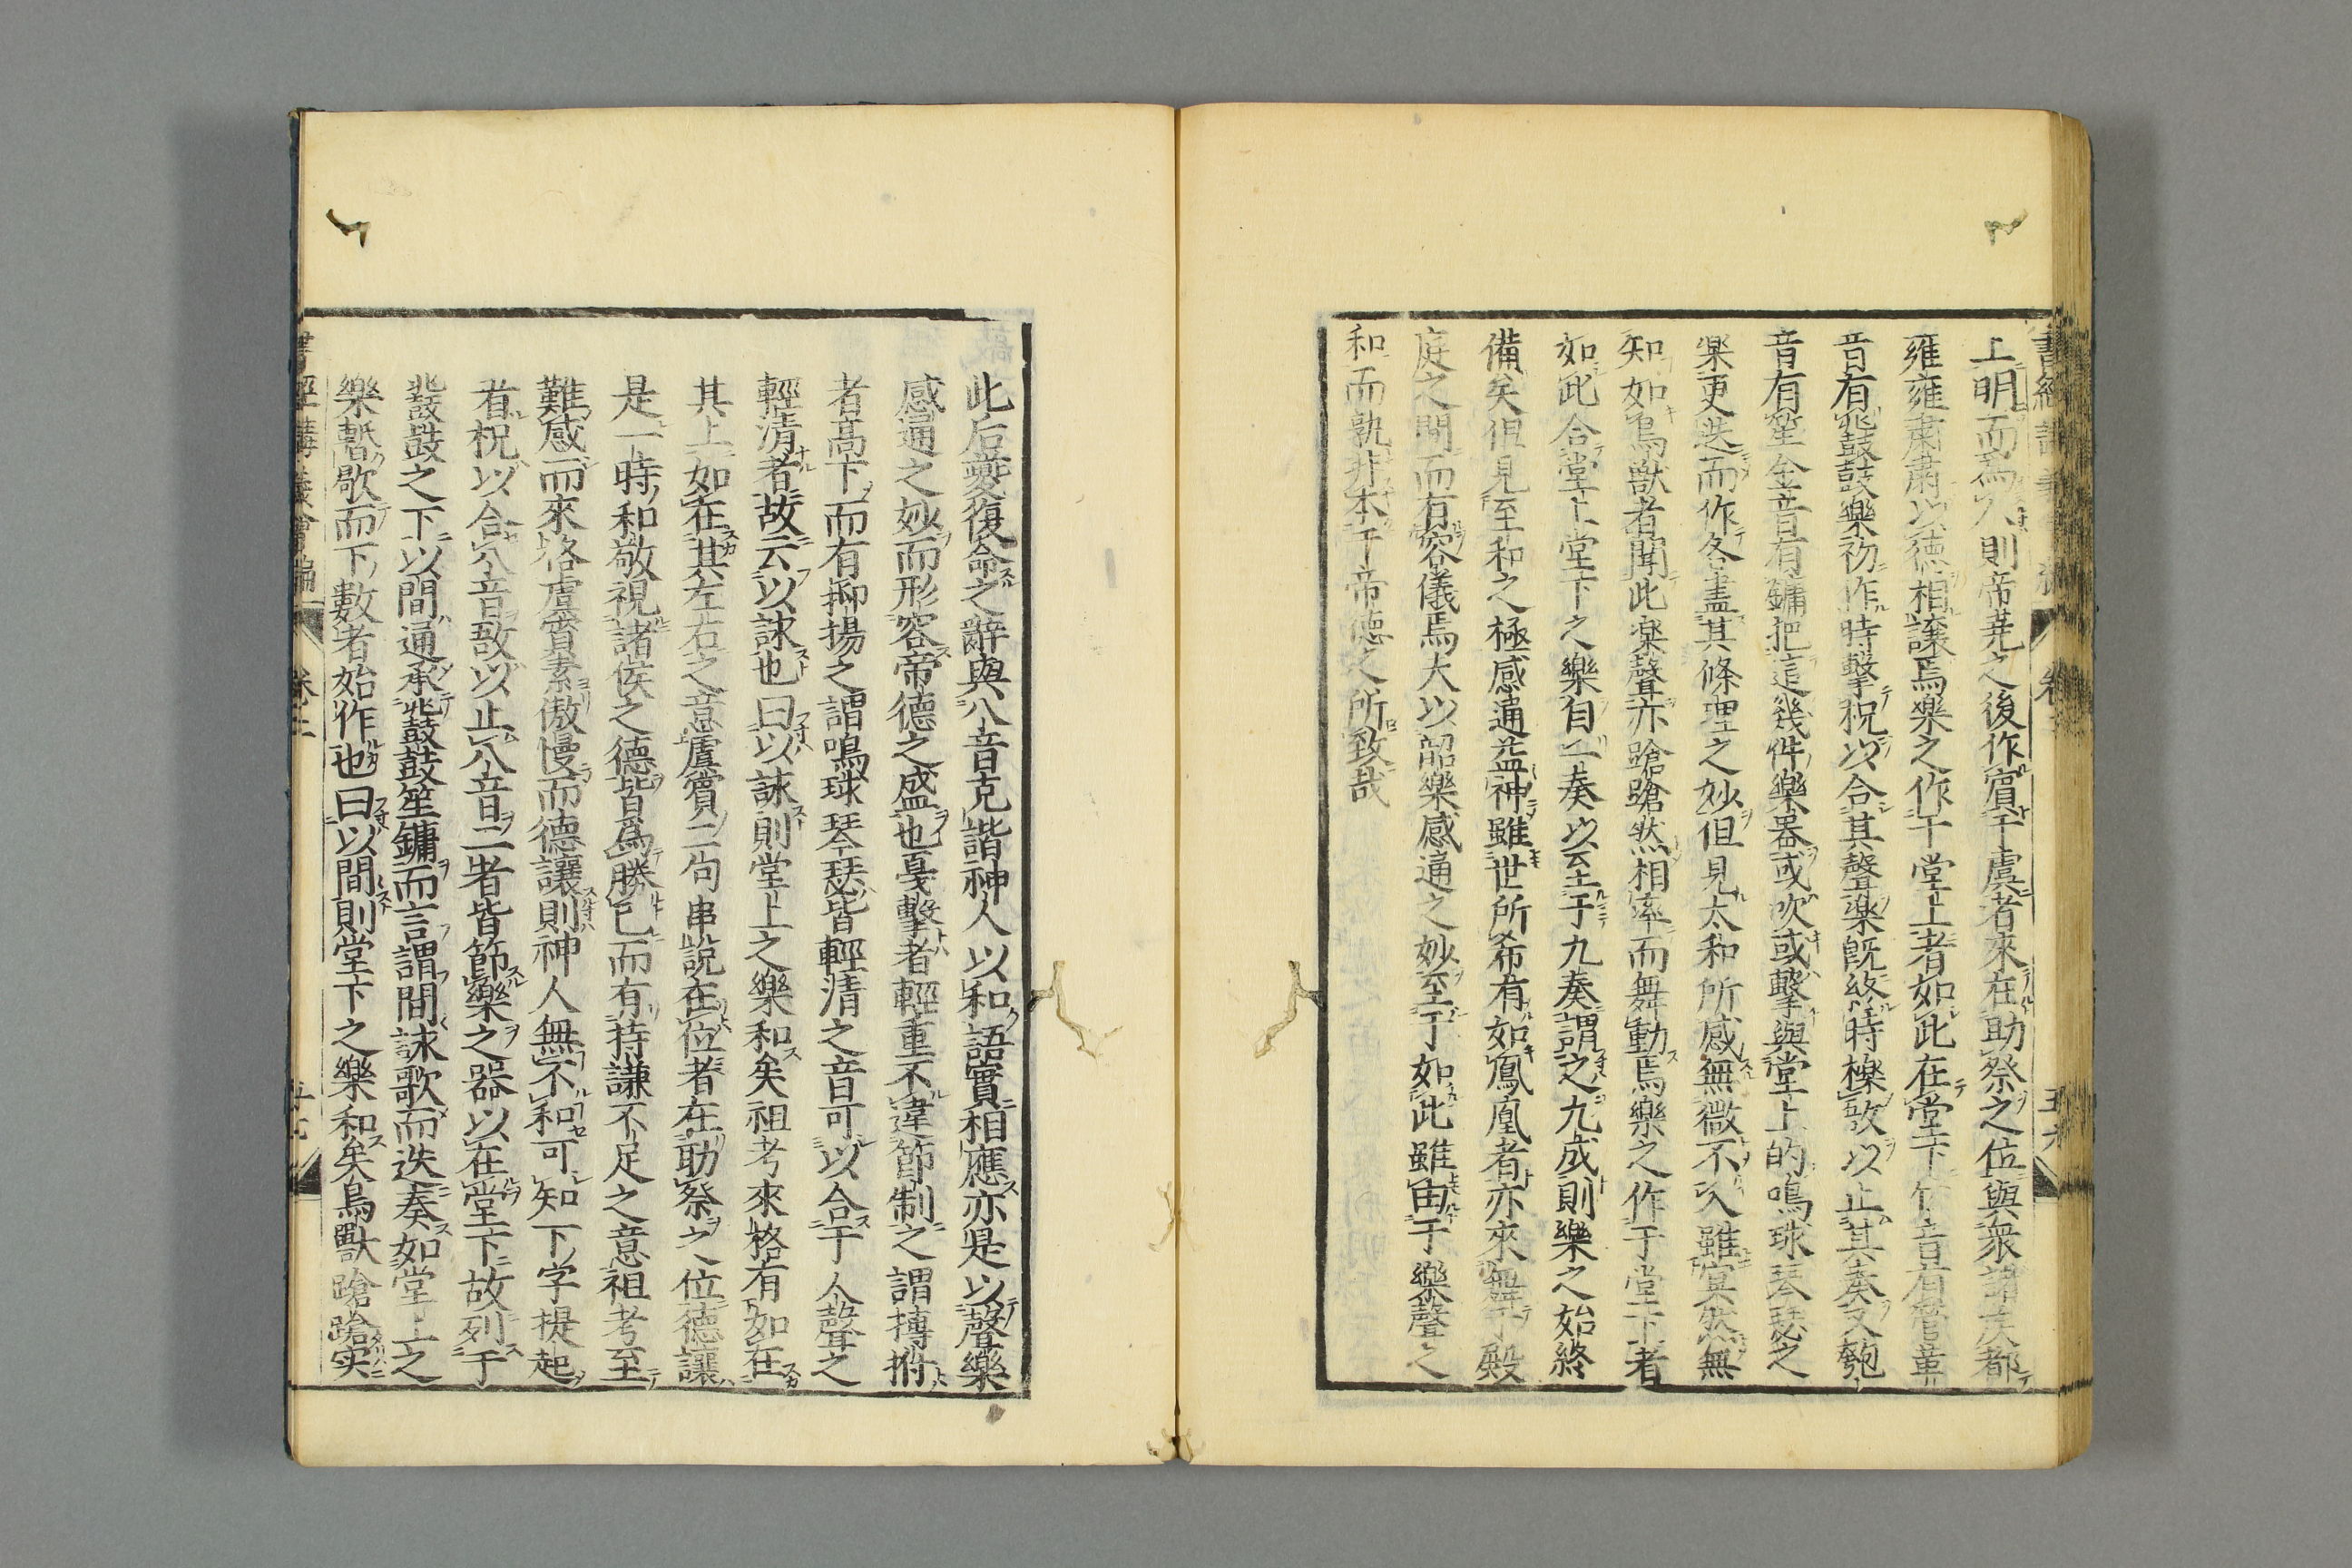 上明而為人則帝堯之後作賓于虞者來在助祭之位與衆諸矦都
雍雍肅肅以徳相譲焉樂之作于堂上者如此在堂下竹音有管革
音有鼗鼓樂初作時擊柷以合其聲樂既終時櫟敔以止其奏又匏
音有笙金音有鏞把這幾件樂器或吹或擊與堂上的鳴球琴瑟之
楽更迭而作各盡其條理之妙但見太和所感無微不入雖寞然無
知如鳥獣者聞此楽聲亦蹌蹌然相率而舞動焉樂之作于堂下者
如此合堂上堂下之樂自一奏以至于九奏謂之九成則樂之始終
備矣但見至和之極感通益神雖世所希有如鳳凰者亦來舞于殿
庭之間而有容儀焉夫以韶樂感通之妙至于如此雖由于樂聲之
和而孰非本于帝徳之所致哉
此后夔復命之辭與八音克諧神人以和語實相應亦是以聲樂
感通之妙而形容帝德之盛也戞擊者輕重不違節制之謂搏拊
者高下而有抑揚之謂鳴球琴瑟皆輕清之音可以合于人聲之
輕清者故云以詠也曰以詠則堂上之樂和矣祖考來格有如在
其上如在其左右之意虞賓二句串說在位者在助祭之位德讓
是一時和敬視諸侯之德皆爲勝己而有持謙不足之意祖考至
難感而來格虞賓素傲慢而德讓則神人無不和可知下字提起
看柷以合八音敔以止八音二者皆節樂之器以在堂下故列于
鼗鼓之下以間通承鼗鼓笙鏞而言謂間詠歌而迭奏如堂上之
樂暫歇而下數者始作也曰以間則堂下之樂和矣鳥獸蹌蹌实
書經講義會編
卷二